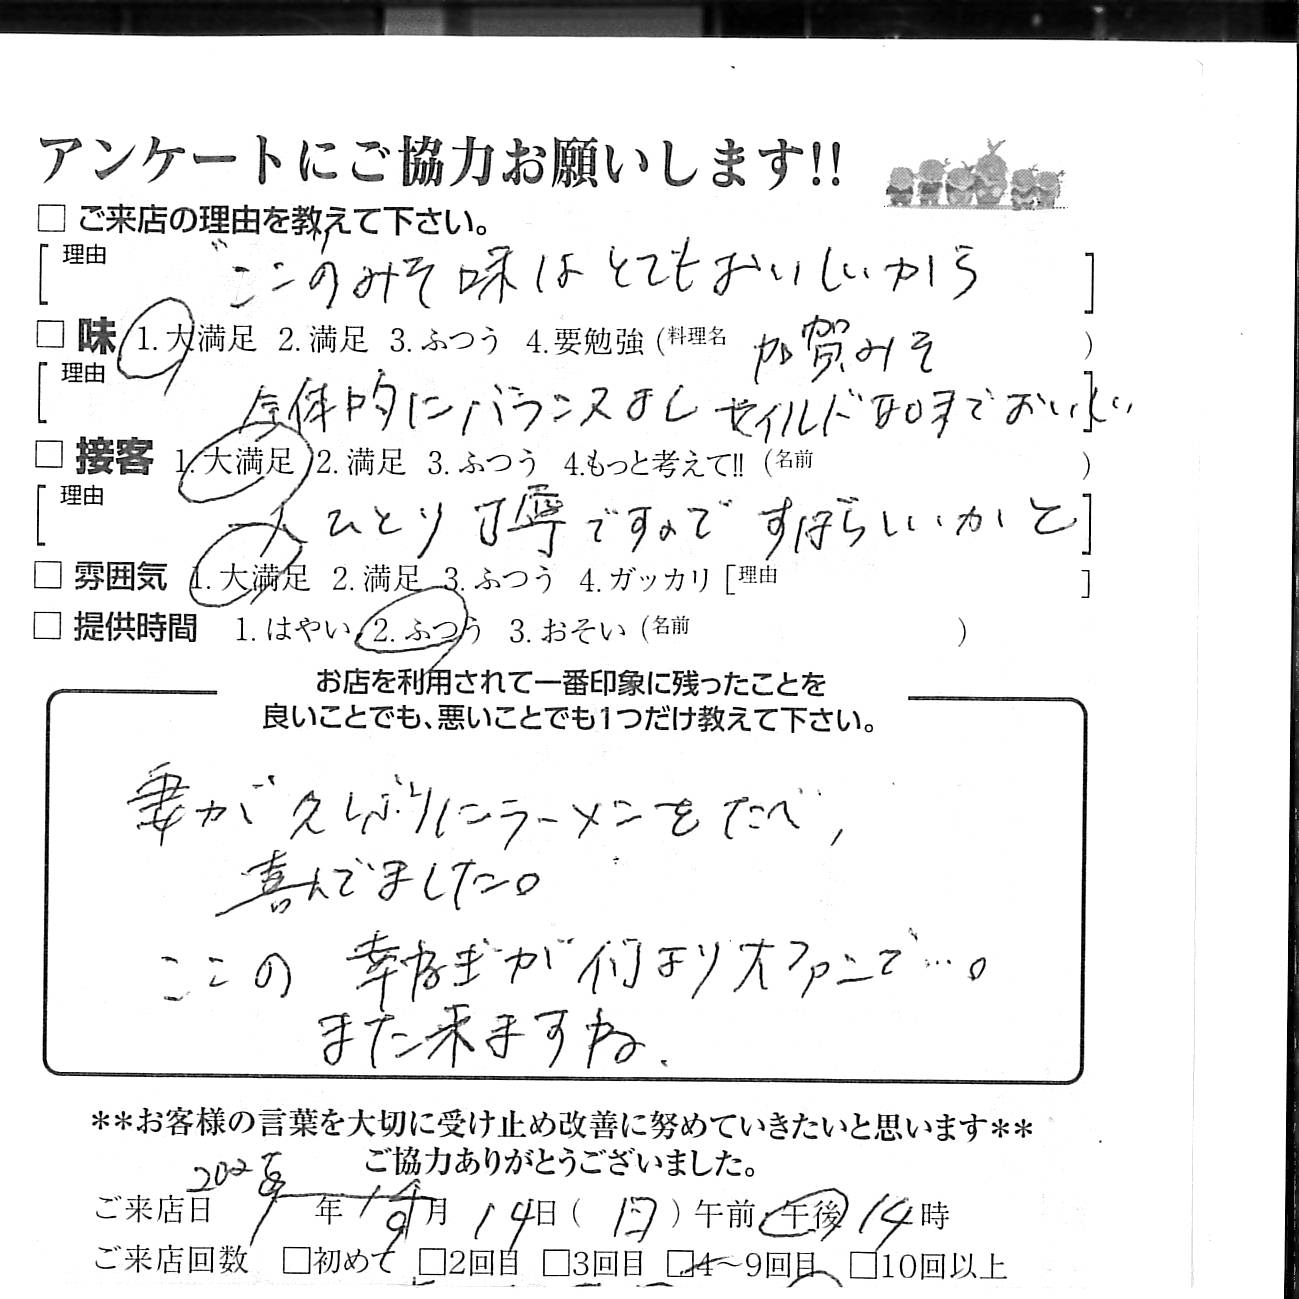 アンケートにご協力お願いします!!
□ ご来店の理由を教えて下さい。
[理由 ここのみそ味はとてもおいしいから]
□ 味 1.大満足 2.満足 3.ふつう 4.要勉強 (料理名 加賀みそ)
[理由 全体的にバランスよし マイルドな口まで おいしい]
□ 接客 1.大満足 2.満足 3.ふつう 4.もっと考えて!! (名前 )
[理由 一人ひとり 丁寧ですので すばらしいかと]
□ 雰囲気 1.大満足 2.満足 3.ふつう 4.ガッカリ [理由 ]
□ 提供時間 1.はやい 2.ふつう 3.おそい (名前 )
お店を利用されて一番印象に残ったことを
良いことでも、悪いことでも1つだけ教えて下さい。
妻が久しぶりにラーメンをたべ,
喜んでました。
ここの 幸ねぎが何より大ファンで…。
また来ますね.
**お客様の言葉を大切に受け止め改善に努めていきたいと思います**
ご協力ありがとうございました。
ご来店日 年 月 14日(日)午前・午後 14時
ご来店回数 □初めて □2回目 □3回目 □4〜9回目 □10回以上